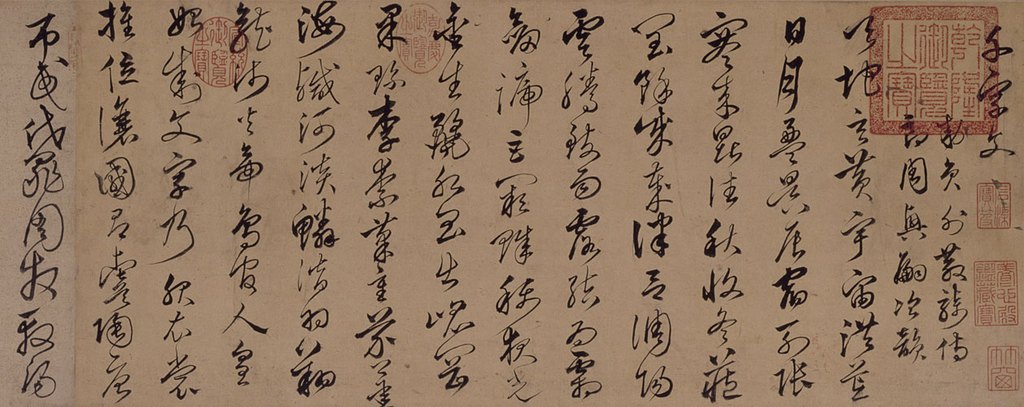 千字文
勅員外散騎侍
郎周興嗣次韻
天地玄黃宇宙洪荒
日月盈昃辰宿列張
寒來暑往秋收冬藏
閏餘成歲律呂調陽
雲騰致雨露結為霜
劍號巨闕珠稱夜光
金生麗水玉出崑岡
果珍李柰菜重芥薑
海鹹河淡鱗潛羽翔
龍師火帝鳥官人皇
始制文字乃服衣裳
推位讓國有虞陶唐
吊民伐罪周發殷湯
乾隆御覽之寶